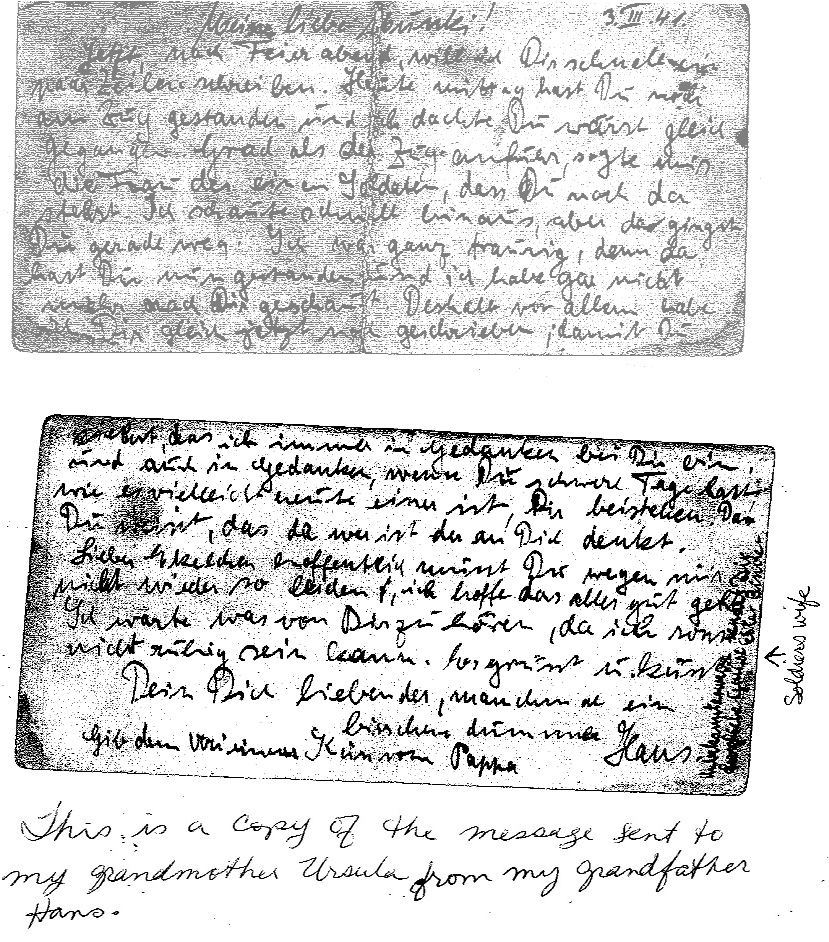 Meine liebe 3. III. 41.
Jetzt, nach Feierabend, will ich Dir schnell ein
paar Zeilen schreiben. Heute mittag hast Du noch
am Zug gestanden und ich dachte Du wärst gleich
gegangen. Grad als der Zug anfuhr, sagte mir
die Frau des einen Soldaten, dass Du noch da
stehst. Ich schaute schnell hinaus, aber da gingst
Du gerade weg. Ich war ganz traurig, denn da
hast Du nun gestanden und ich habe gar nicht
mehr nach Dir geschaut. Deshalb vor allem habe
ich Dir gleich jetzt noch geschrieben, damit Du
das ich immer in Gedanken bei Dir bin,
und auch in Gedanken, wenn Du schwere Tage hast
wie es vielleicht heute einer ist, Dir beistehen. Das
Du weist, das da wer ist der an Dich denkt.
Liebes hoffentlich musst Du wegen mir
nicht wieder so leiden, ich hoffe das alles gut geht
Ich warte was von Dir zu hören, da ich sonst
nicht ruhig sein kann. Es grüsst u. küsst
Dein Dich liebender, manchmal ein
bisschen dummer Hans.
Gib dem einen Kuss vom Pappa
Soldiers wife
This is a copy of the message sent to
my grandmother Ursula from my grandfather
Hans.